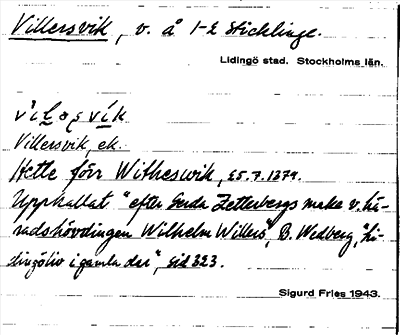 Villersvik, v. å 1-2 Sticklinge.
Lidingö stad. Stockholms län.
Villersvik, ek.
Hette förr Witheswik, 25.7.1874.
Upphallat "efter Gerda Zetterbergs make v. hä-
radshövdingen Wilhelm Willers", B. Wedberg, "Li-
dingöliv i gamla dar", sid 323.
Sigurd Fries 1943.